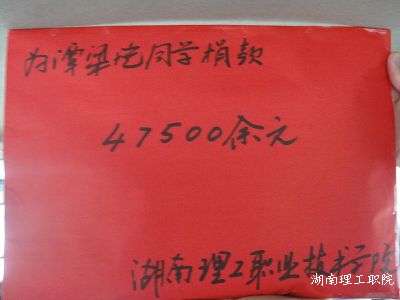 为谭梁
同学捐款
47500余元
湖南理工职业技术学院
湖南理工职院